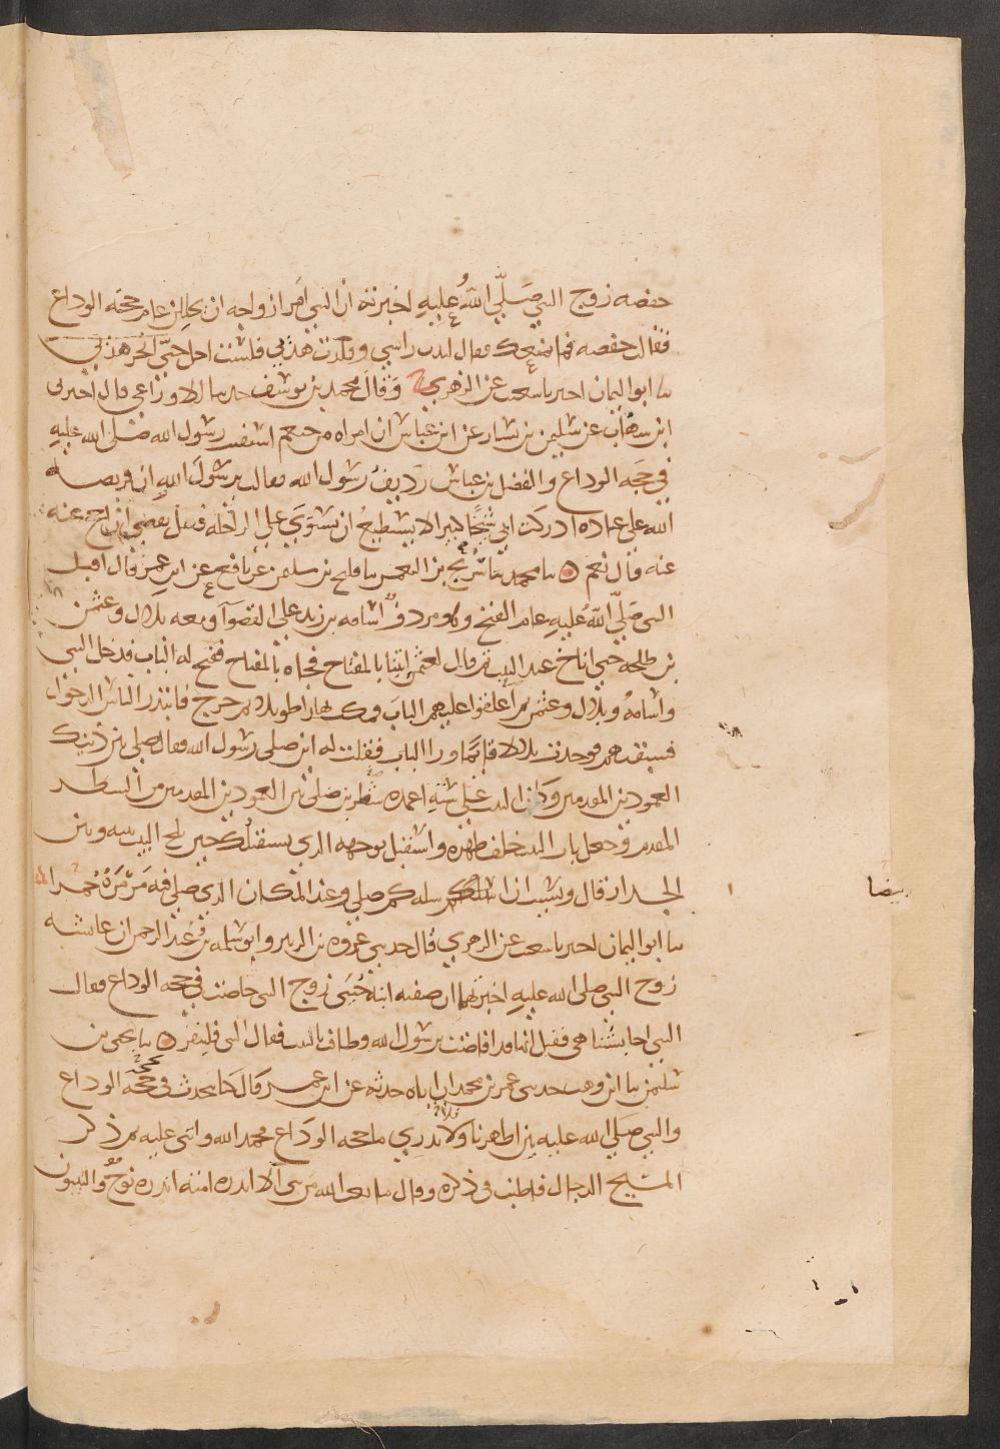 حفصه زوج النبي صَلَّى اللهُ عليهِ اخبرته ان النبي اَمَر ازواجه ان يحللن عام حجه الوداع
فقالت حفصه فما يمنعك فقال لبدت راسي وقلدت هَديي فلست احل حتَّى انحر هَديي
نا ابو اليمان اخبرنا شعيب عن الزهري وَقال محمد بن يوسف حدثنا الاوزاعي قال اخبرني
ابن شهاب عن سليمن بن يسار عن ابن عباس ان امراه من خثعم استفتت رسول الله صلى الله عليه
في حجه الوداع والفضل بن عباس رَديفُ رسول الله فقالت يرسولَ اللهِ ان فريضه
الله على عباده ادركت ابي شيخًا كبيرا لا يستطيعُ ان يستوي على الراحله فهل يقضي ان احج عنه
عنه قال نعم نا محمد نا سُريج بن النعمن نا فليح بن سليمن عن نافع عن ابن عمرَ قال اقبل
النبي صَلَّى اللهُ عليهِ عام الفتح وهو مردف اسامه بن زيد على القصوآ ومعه بلال وعثمن
بن طلحه حتى اناخ عند البيت ثم قال لعثمن ايتنا بالمفتاح فجاه بالمفتاح ففتح له الباب فدخل النبي
واسامهُ وبلال وعثمن ثم اغلقوا عليهم البابَ فمكث نهارا طويلا ثم خرج فابتدر الناس الدخول
فسبقتهم فوجدت بلالا قايمًا ورا الباب فقلت له اين صلى رسول الله فقال صلى بين ذينك
العمودين المقدمين وكان البيت على ستهِ اعمده سطرين صلى بين العمودين المقدمين من السطر
المقدم وجعل باب البيت خلف ظهره واستقبل بوجهه الذي يستقبلك حين تلج البيت بينه وبين
الجدار قال ونسيت ان اسئله كم صلى وعند المكان الذي صلى فيه مَرْمَرَةٌ حُمرا
بيضا
نا ابو اليمان اخبرنا شعيب عن الزهري قال حدثني عروه بن الزبير وابو سلمه بن عبد الرحمن ان عايشه
زوج النبي صلى الله عليهِ اخبرتهما ان صفيه ابنة حُيَي زوج النبي حاضت في حجه الوداع فقال
النبي احابستنا هي فقيل انها قد افاضت يرسول الله وطافت بالبيت فقال النبي فلتنفر نا يحيى بن
سليمن نا ابن وهب حدثني عمر بن محمد ان اباه حدثه عن ابن عمر قال كنا نحدث في حجه الوداع
والنبي صَلى الله عليهِ بين اظهرنا ولا ندري ما حجه الوداع فحمد الله واثنى عليه ثم ذكر
المسيح الدجال فاطنب في ذكره وقال ما بعث الله من نبي الا انذره امته انذره نوحُ والنبيون